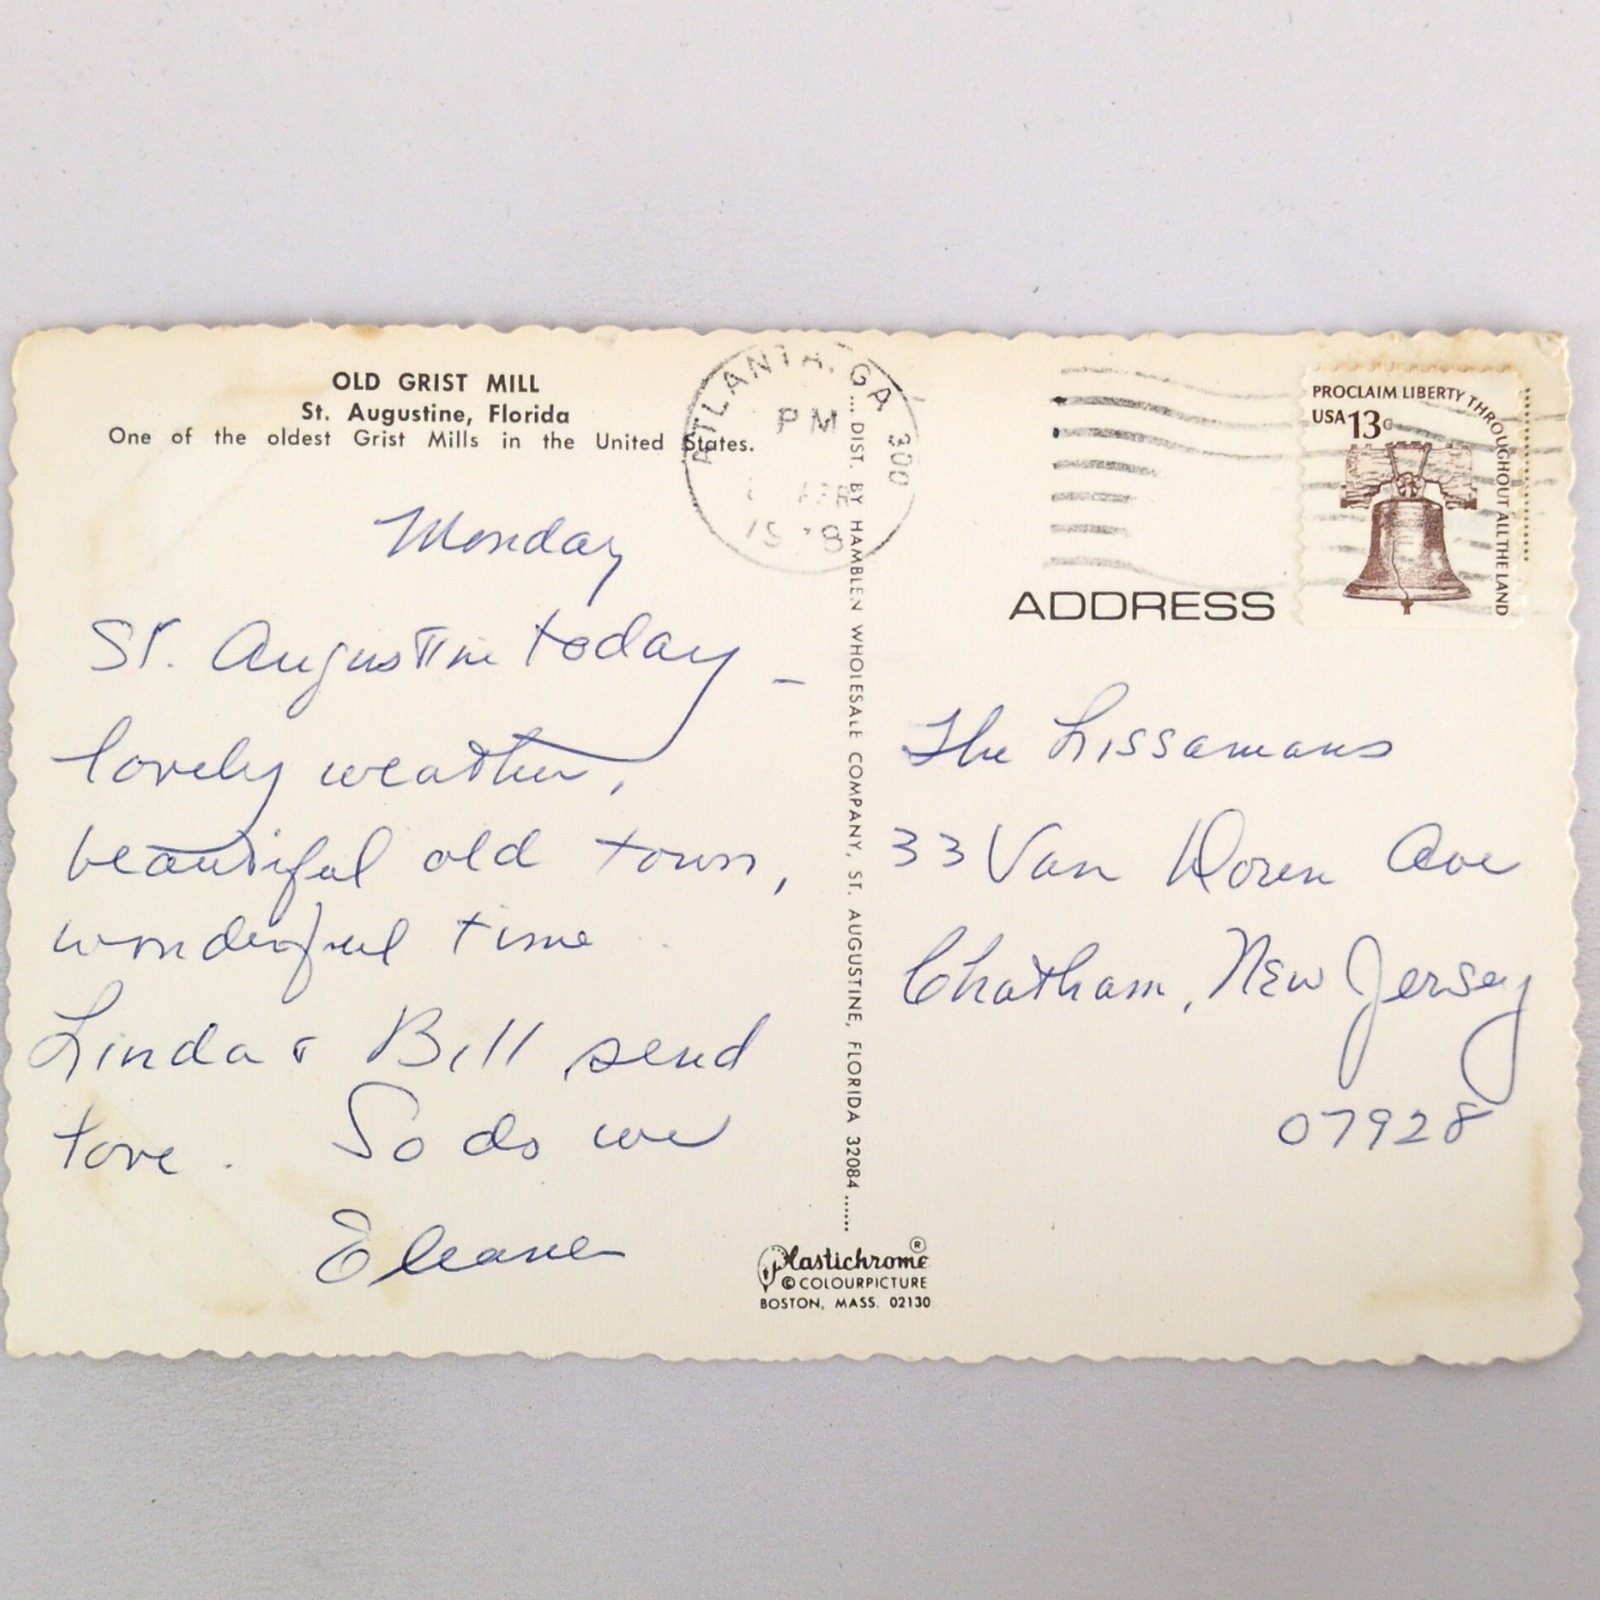 OLD GRIST MILL
St. Augustine, Florida
One of the oldest Grist Mills in the United States.
Monday
St. Augustine today –
lovely weather,
beautiful old town,
wonderful time
Linda & Bill send
love. So do we
Eleanor
ATLANTA, GA 300
PM
1978
... DIST. BY HAMBLEN WHOLESALE COMPANY, ST. AUGUSTINE, FLORIDA 32084 ......
Plastichrome ®
© COLOURPICTURE
BOSTON, MASS. 02130
PROCLAIM LIBERTY THROUGHOUT ALL THE LAND
USA 13c
ADDRESS
The Lissamans
33 Van Doren Ave
Chatham, New Jersey
07928